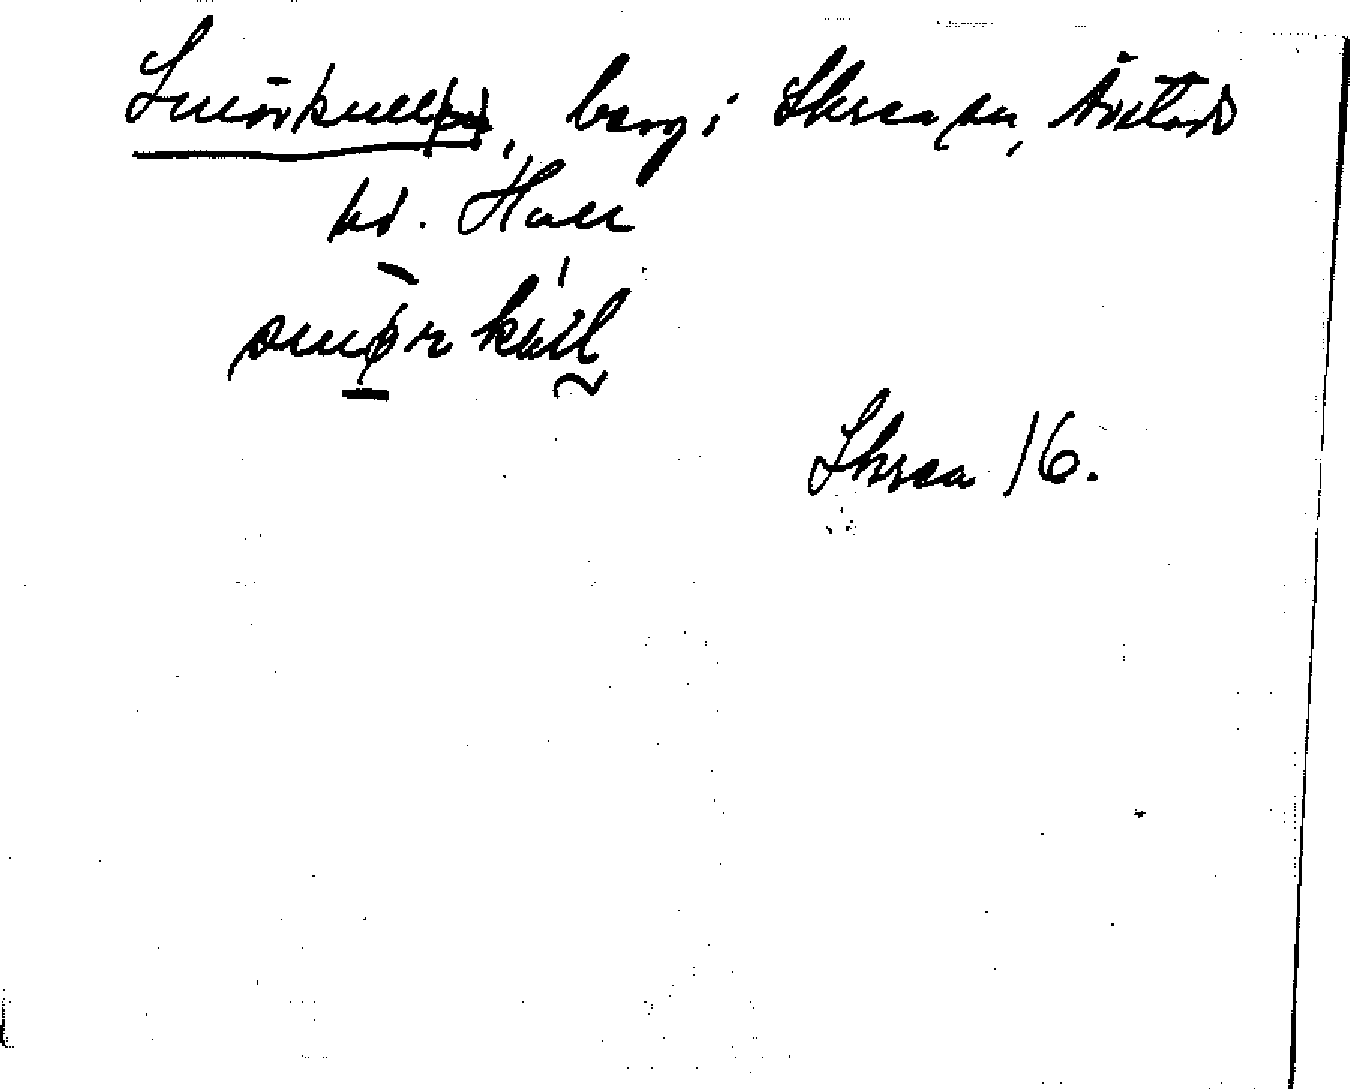 Smörkullen, berg i Skrea sn, Årstads
hd. Hall
smør kull
Skrea 16.